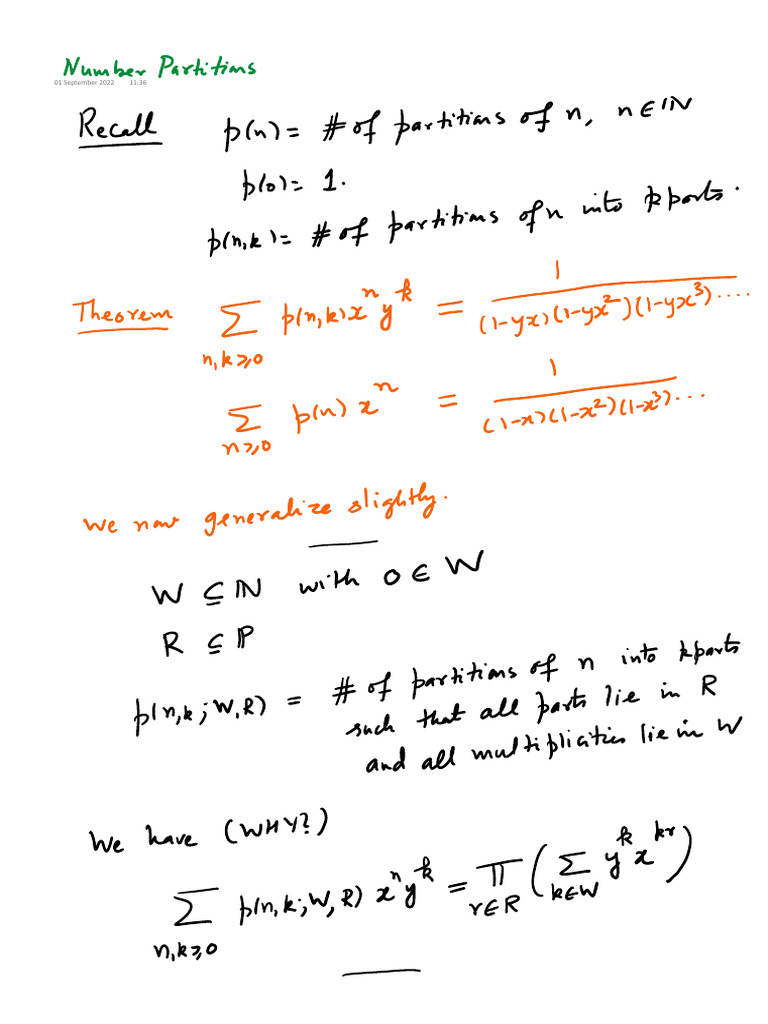 Number Partitions
01 September 2022 11:36
Recall p(n) = # of partitions of n, n ∈ ℕ
p(0) = 1.
p(n,k) = # of partitions of n into k parts.
Theorem ∑_{n,k≥0} p(n,k) x^n y^k = 1 / ((1-yx)(1-yx^2)(1-yx^3)....)
∑_{n≥0} p(n) x^n = 1 / ((1-x)(1-x^2)(1-x^3)...)
We now generalize slightly.
W ⊆ ℕ with 0 ∈ W
R ⊆ ℙ
p(n,k; W,R) = # of partitions of n into k parts
such that all parts lie in R
and all multiplicities lie in W
We have (WHY?)
∑_{n,k≥0} p(n,k; W,R) x^n y^k = ∏_{r∈R} (∑_{k∈W} y^k x^{kr})